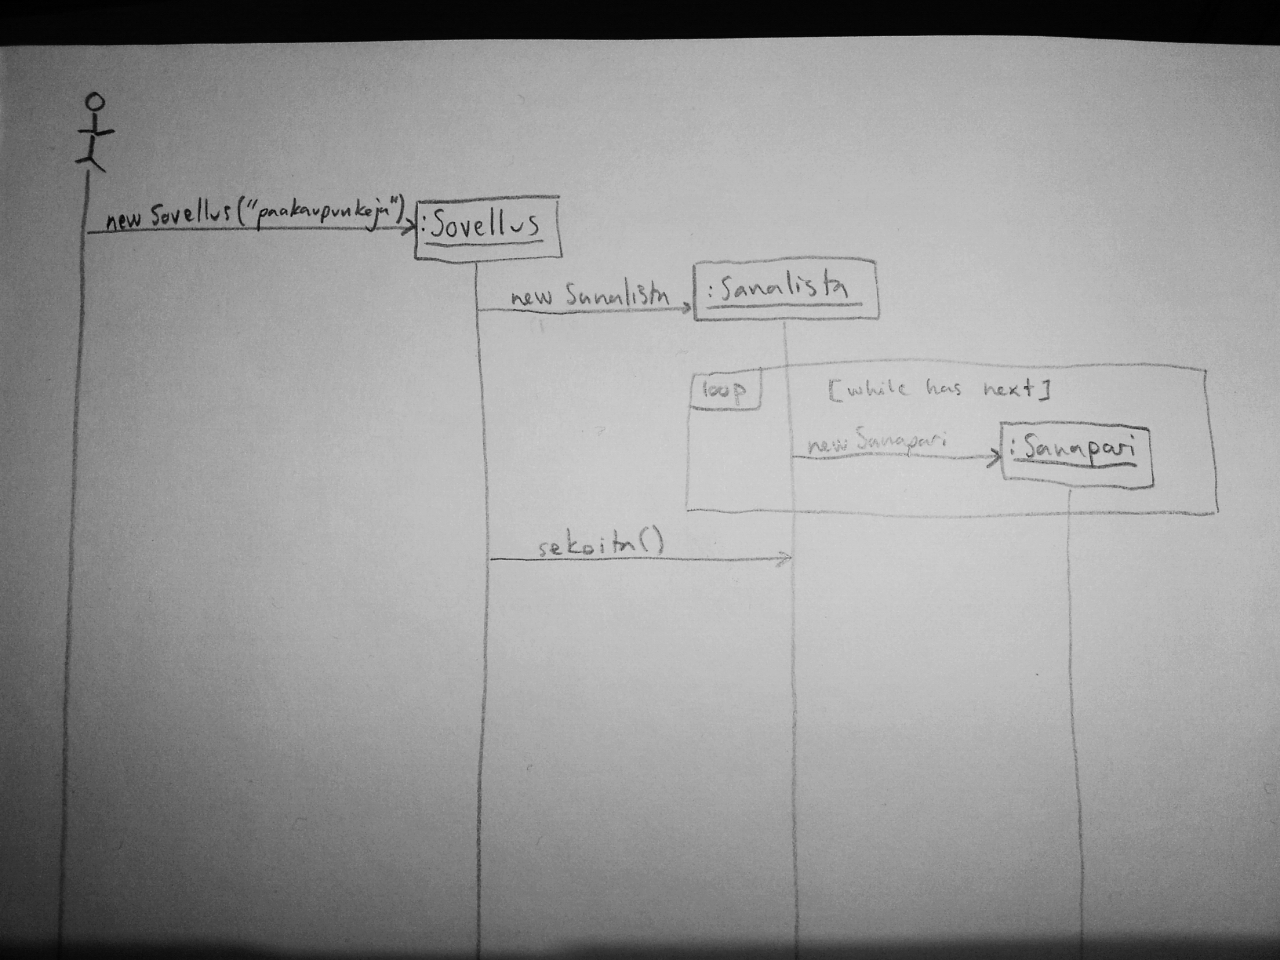 new Sovellus("paakaupunkeja")
:Sovellus
new Sanalista
:Sanalista
loop
[while has next]
new Sanapari
:Sanapari
sekoita()